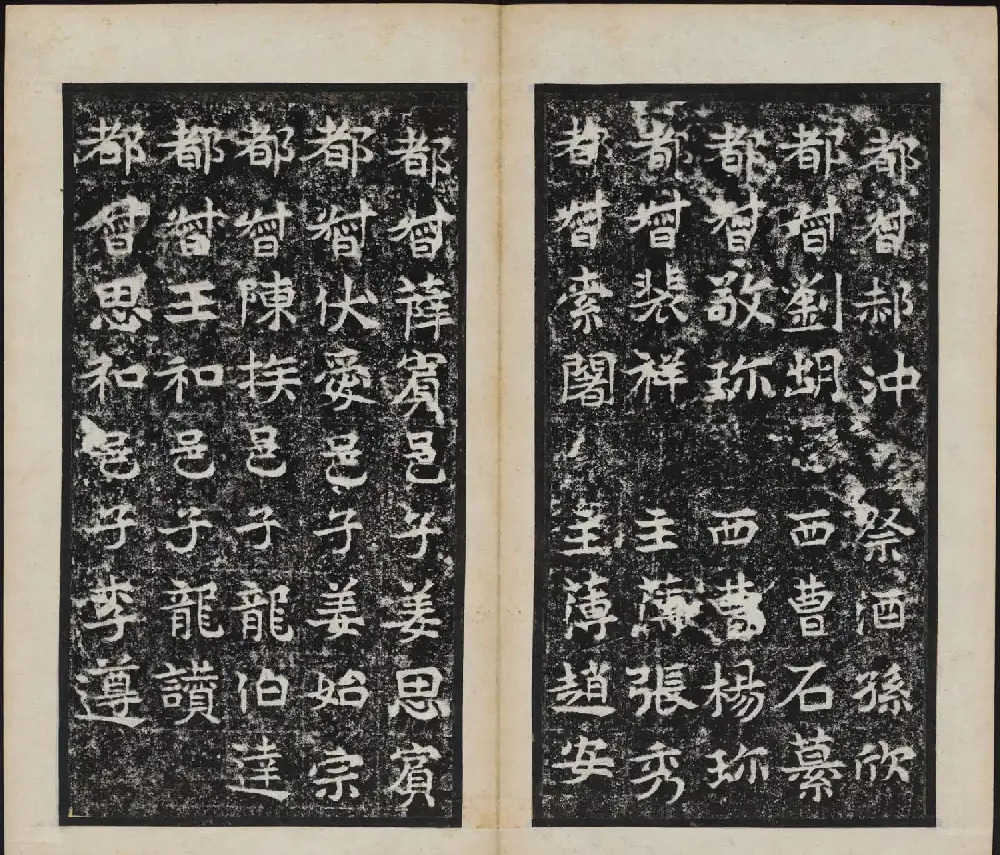 都督郝沖 祭酒孫欣
都督劉胡 西曹石
都督敬珎 西曹楊珎
都督裴祥 主薄張秀
都督索闍 主薄趙安
都督薛賓邑子姜思賓
都督伏愛邑子姜始宗
都督陳族邑子龍伯達
都督王和邑子龍讃
都督思和邑子李遵